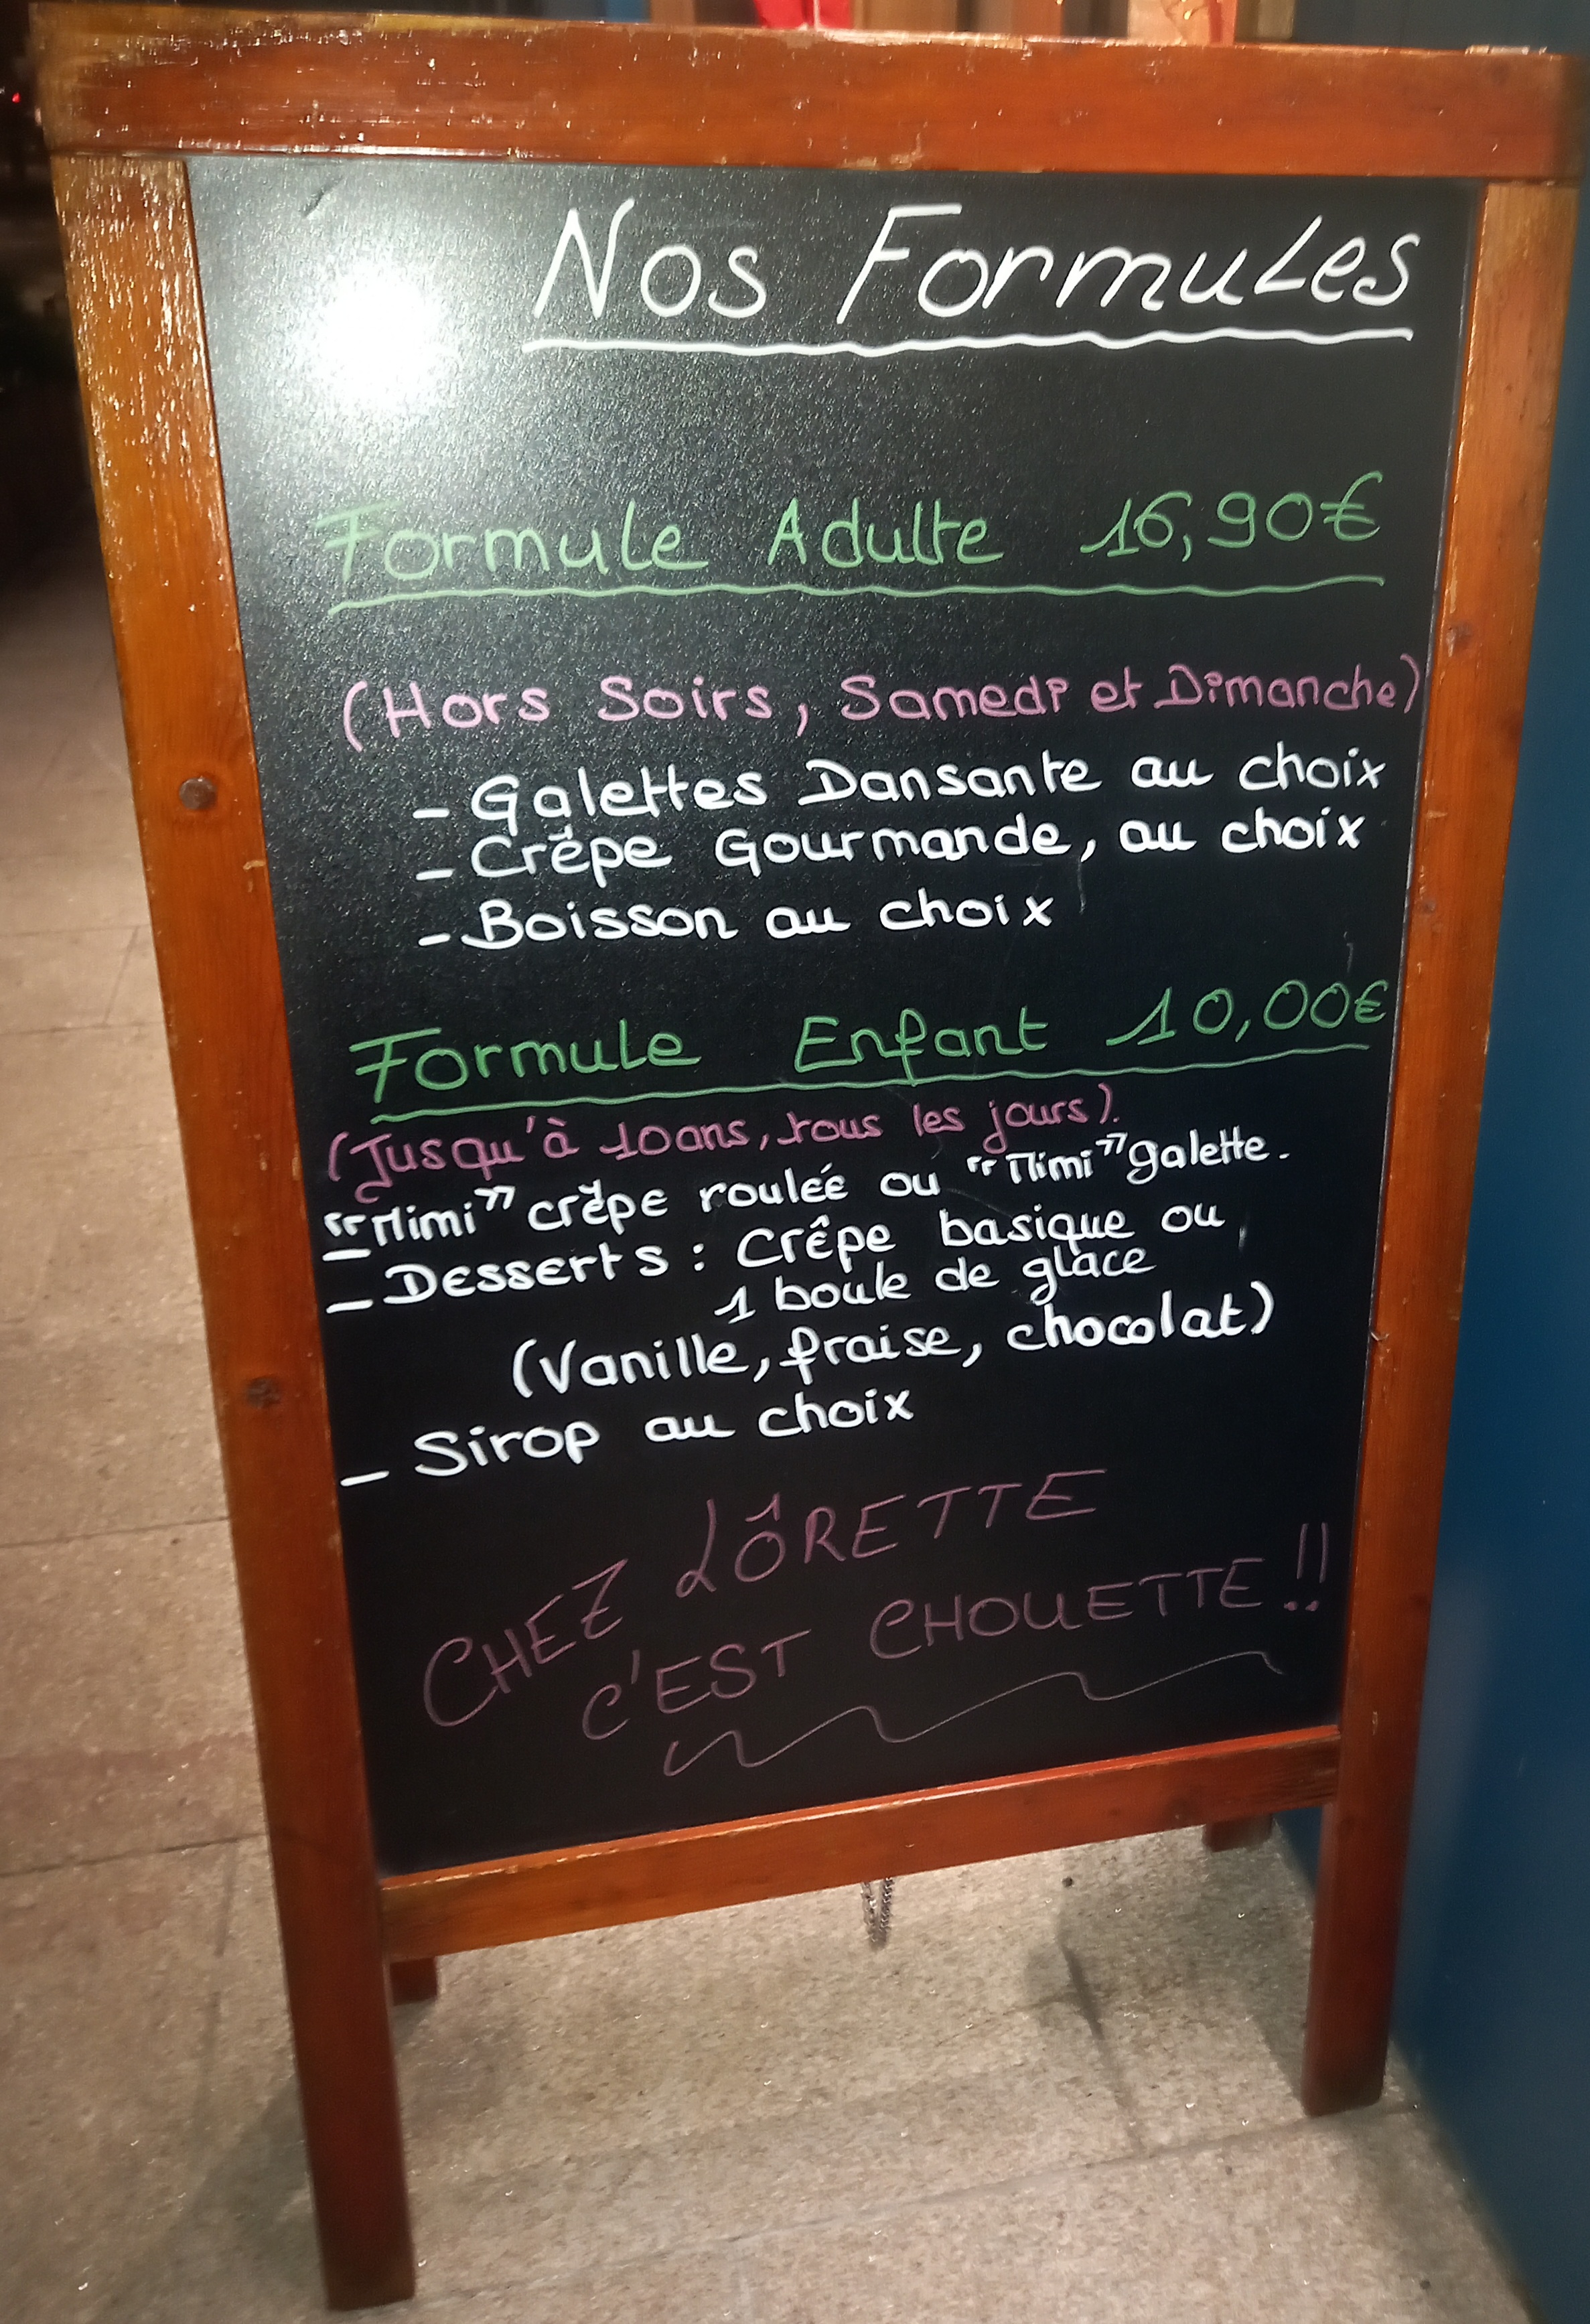 Nos Formules
Formule Adulte 16,90€
(Hors Soirs, Samedi et Dimanche)
- Galettes Dansante au choix
- Crêpe Gourmande, au choix
- Boisson au choix
Formule Enfant 10,00€
(Jusqu'à 10ans, tous les jours).
- "Mimi" crêpe roulée ou "Mimi" galette.
- Desserts : Crêpe basique ou
1 boule de glace
(Vanille, fraise, chocolat)
- Sirop au choix
CHEZ LÔRETTE
C'EST CHOUETTE !!